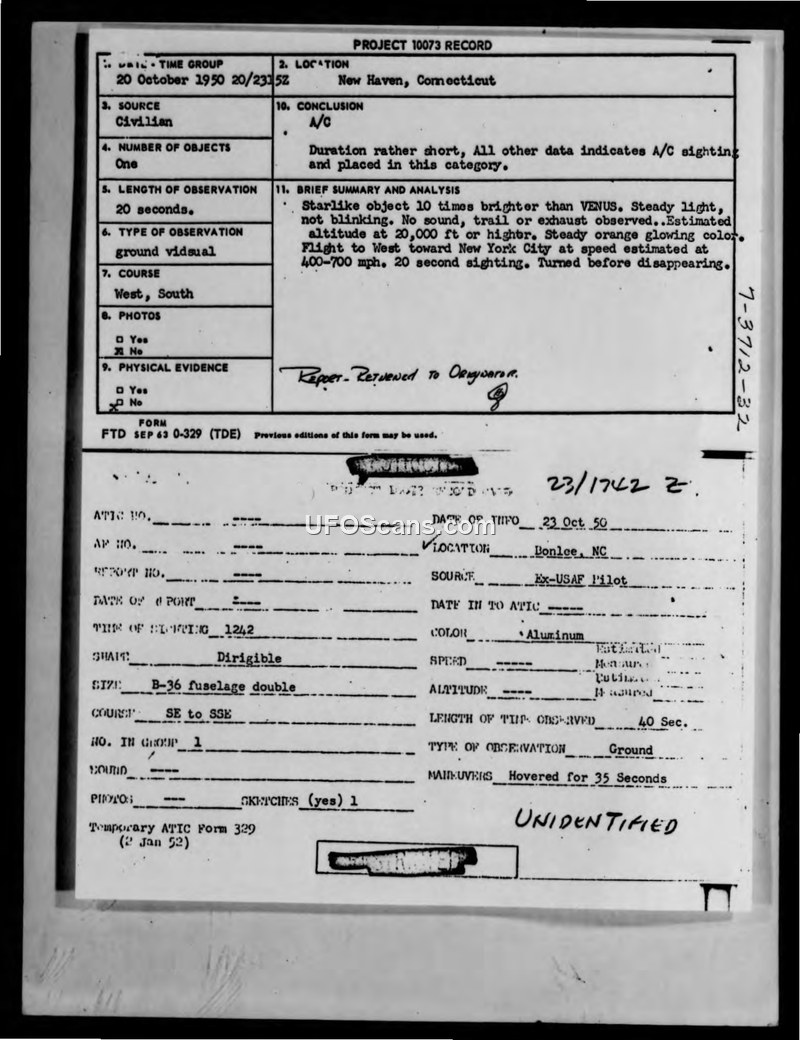 PROJECT 10073 RECORD
TIME GROUP
20 October 1950 20/2315Z
2. LOCATION
New Haven, Connecticut
3. SOURCE
Civilian
10. CONCLUSION
A/C
Duration rather short, All other data indicates A/C sighting
and placed in this category.
4. NUMBER OF OBJECTS
One
5. LENGTH OF OBSERVATION
20 seconds.
11. BRIEF SUMMARY AND ANALYSIS
Starlike object 10 times brighter than VENUS. Steady light,
not blinking. No sound, trail or exhaust observed..Estimated
altitude at 20,000 ft or highbr. Steady orange glowing color.
Flight to West toward New York City at speed estimated at
400-700 mph. 20 second sighting. Turned before disappearing.
6. TYPE OF OBSERVATION
ground vidsual
7. COURSE
West, South
8. PHOTOS
Yes
X No
9. PHYSICAL EVIDENCE
Yes
X No
Report Returned to Originator.
7-3712-32
FORM
FTD SEP 63 0-329 (TDE) Previous editions of this form may be used.
23/1742 Z.
ATIC NO. ----
DATE OF INFO 23 Oct 50
UFOScans.com
AF NO. ----
✓LOCATION Bonlee, NC
REPORT NO. ----
SOURCE Ex-USAF Pilot
DATE OF REPORT ----
DATE IN TO ATIC -----
TIME OF SIGHTING 1242
COLOR Aluminum
SHAPE Dirigible
SPEED -----
SIZE B-36 fuselage double
ALTITUDE ----
COURSE SE to SSE
LENGTH OF TIME OBSERVED 40 Sec.
NO. IN GROUP 1
TYPE OF OBSERVATION Ground
SOUND ----
MANEUVERS Hovered for 35 Seconds
PHOTOS --- SKETCHES (yes) 1
Temporary ATIC Form 329
(2 Jan 52)
UNIDENTIFIED